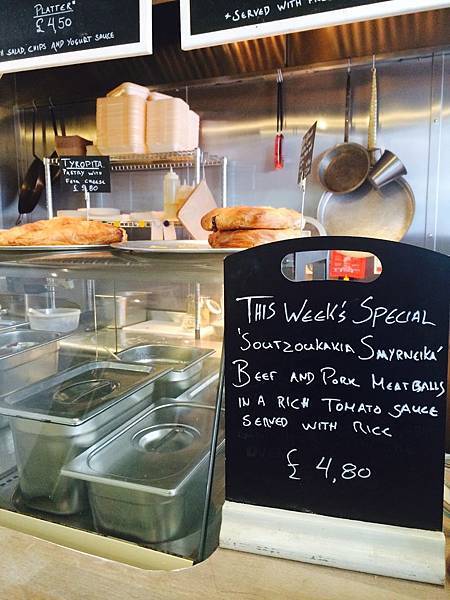 PLATTER*
£4,50
SALAD, CHIPS AND YOGURT SAUCE
*SERVED WITH
TYROPITA
PASTRY WITH
FETA CHEESE
£ 2,80
THIS WEEK'S SPECIAL
'SOUTZOUKAKIA SMYRNEIKA'
BEEF AND PORK MEATBALLS
IN A RICH TOMATO SAUCE
SERVED WITH RICE
£ 4,80